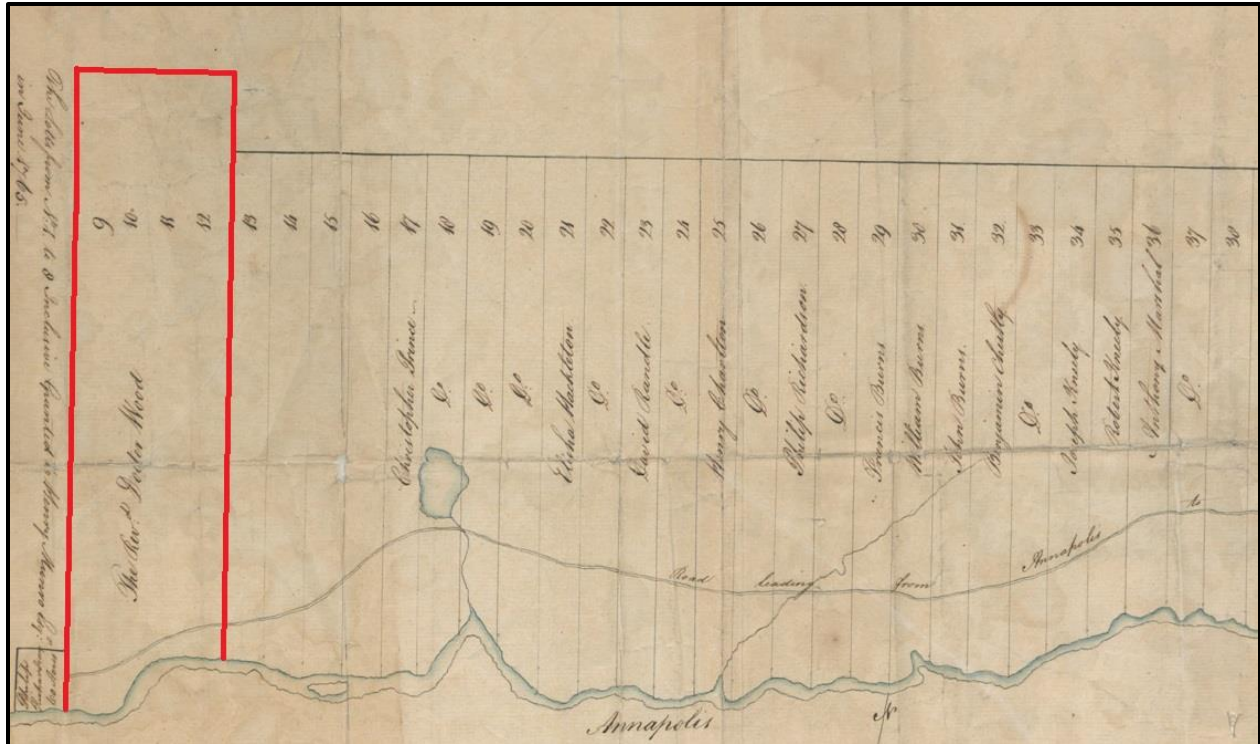 The Lotts from No. 1. to 8 Inclusive Granted to Henry Munro Esqr.
in June 1765.
9
10.
11
12
13
14
15
16
17
18
19
20
21
22
23
24
25
26
27
28
29
30
31
32
33
34
35
36
37
38
The Revd. Doctor Wood
Christopher Prince
Do.
Do.
Do.
Elisha Hackleton
Do.
David Randle
Do.
Henry Charlton
Do.
Philip Richardson
Do.
Francis Burns
William Burns
John Burns
Benjamin
Do.
Joseph
Robert
Anthony Marshal
Do.
Road leading from Annapolis to
Philip
Richardson
Annapolis
N